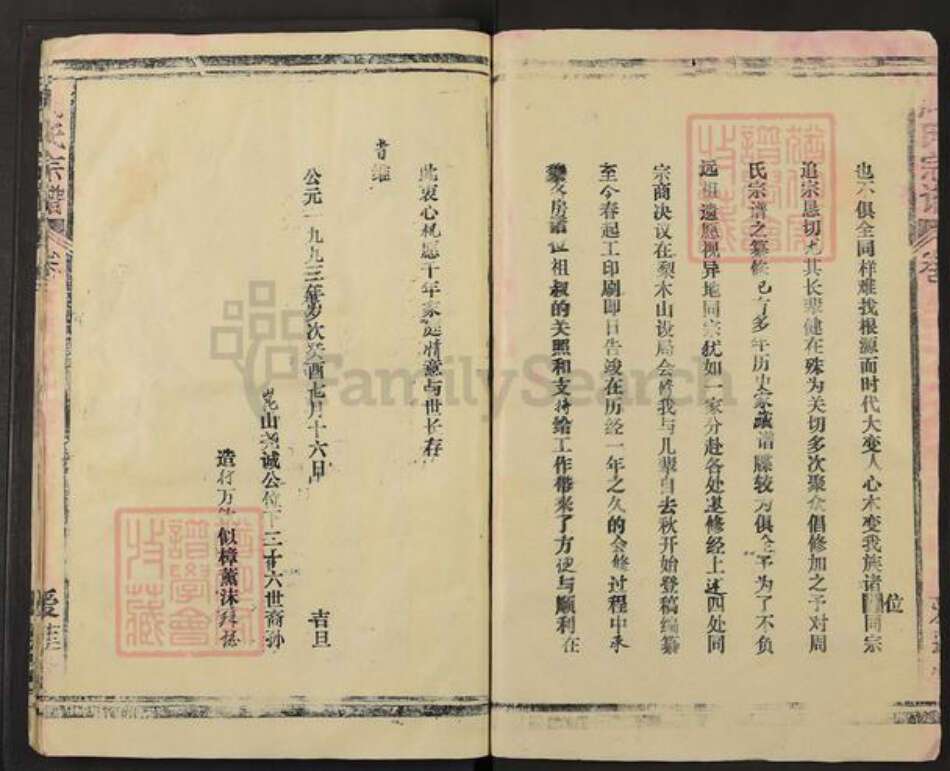 也不俱全同样难找根源面时代大变人心木变我族诸位同宗
追宗恳切尤其长辈健在殊为关切多次聚众倡修加之予对周
氏宗谱之纂修已有多年历史家藏谱牒较为俱全予为了不负
远祖遗愿视异地同宗犹如一家分赴各处逑修经上述四处同
宗商决议在梨木山设局会修我与儿辈自去秋开始登稿编纂
至今春起工印刷即日告竣在历经一年之久的会修过程中承
蒙各房诸位祖叔的关照和支持给工作带来了方便与顺利在
此衷心祝愿千年家庭情意与世长存
时维
公元一九九三年岁次癸酉七月十六日 吉旦
山尧诚公位下三十六世裔孙
造行万 似樟薰沐拜
氏宗谱
氏宗谱
爱莲
谱学会
收藏
谱学会
收藏
FamilySearch